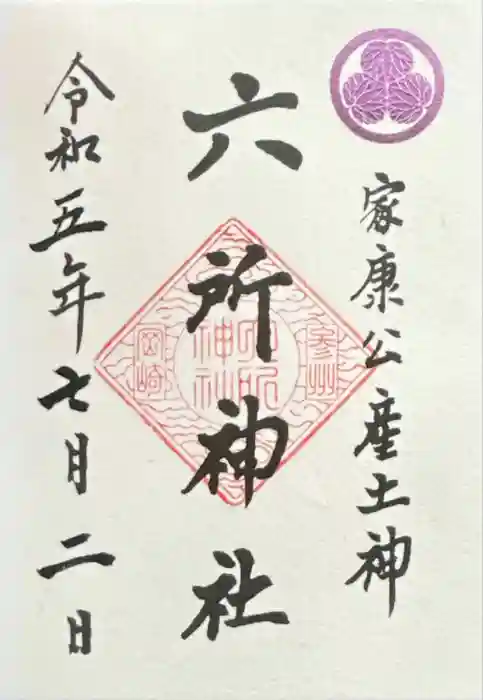 家康公産土神
六所神社
令和五年七月二日
参州
六所神社
岡崎